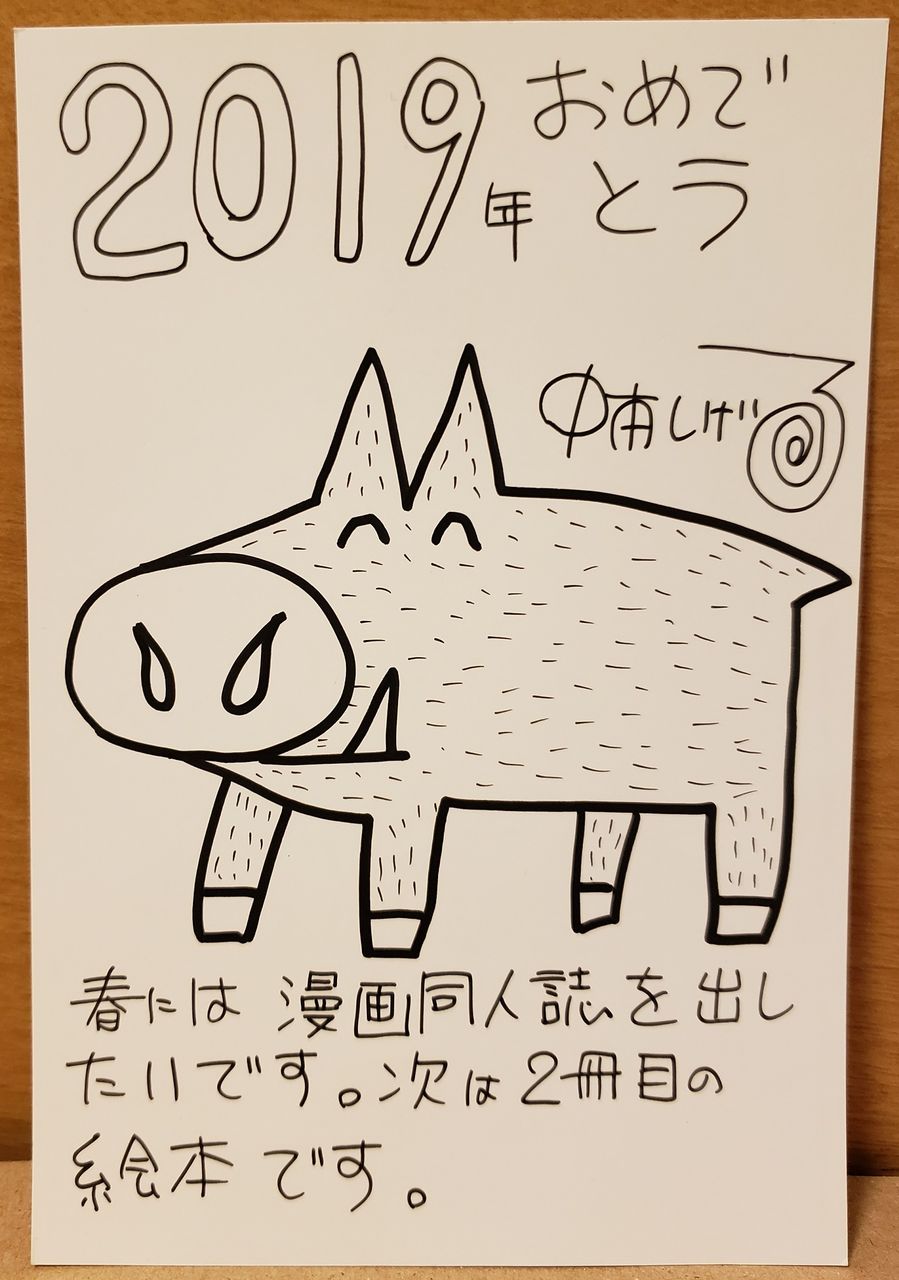 2019年 おめで
とう
しげる
春には 漫画同人誌を出し
たいです。次は2冊目の
絵本です。